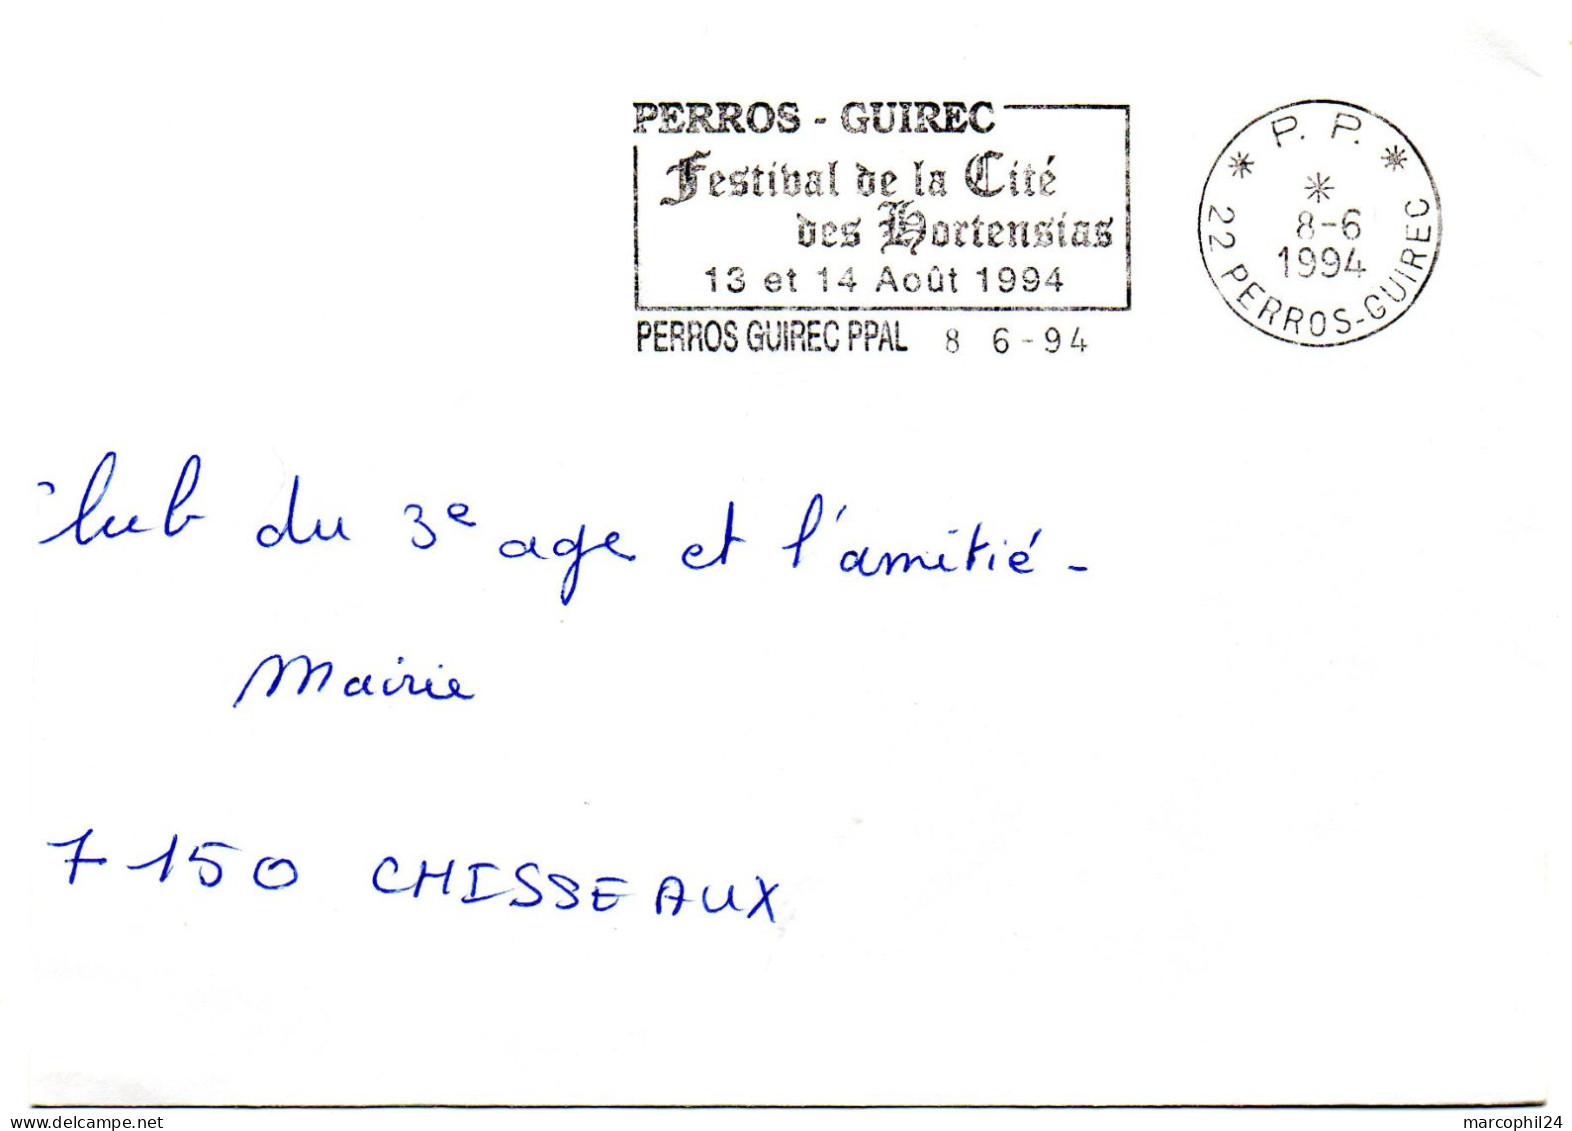 PERROS - GUIREC
Festival de la Cité
des Hortensias
13 et 14 Août 1994
PERROS GUIREC PPAL 8 6-94
* P. P. *
*
8-6
1994
22 PERROS-GUIREC
Club du 3e age et l'amitié -
Mairie
7150 CHISSEAUX
marcophil24